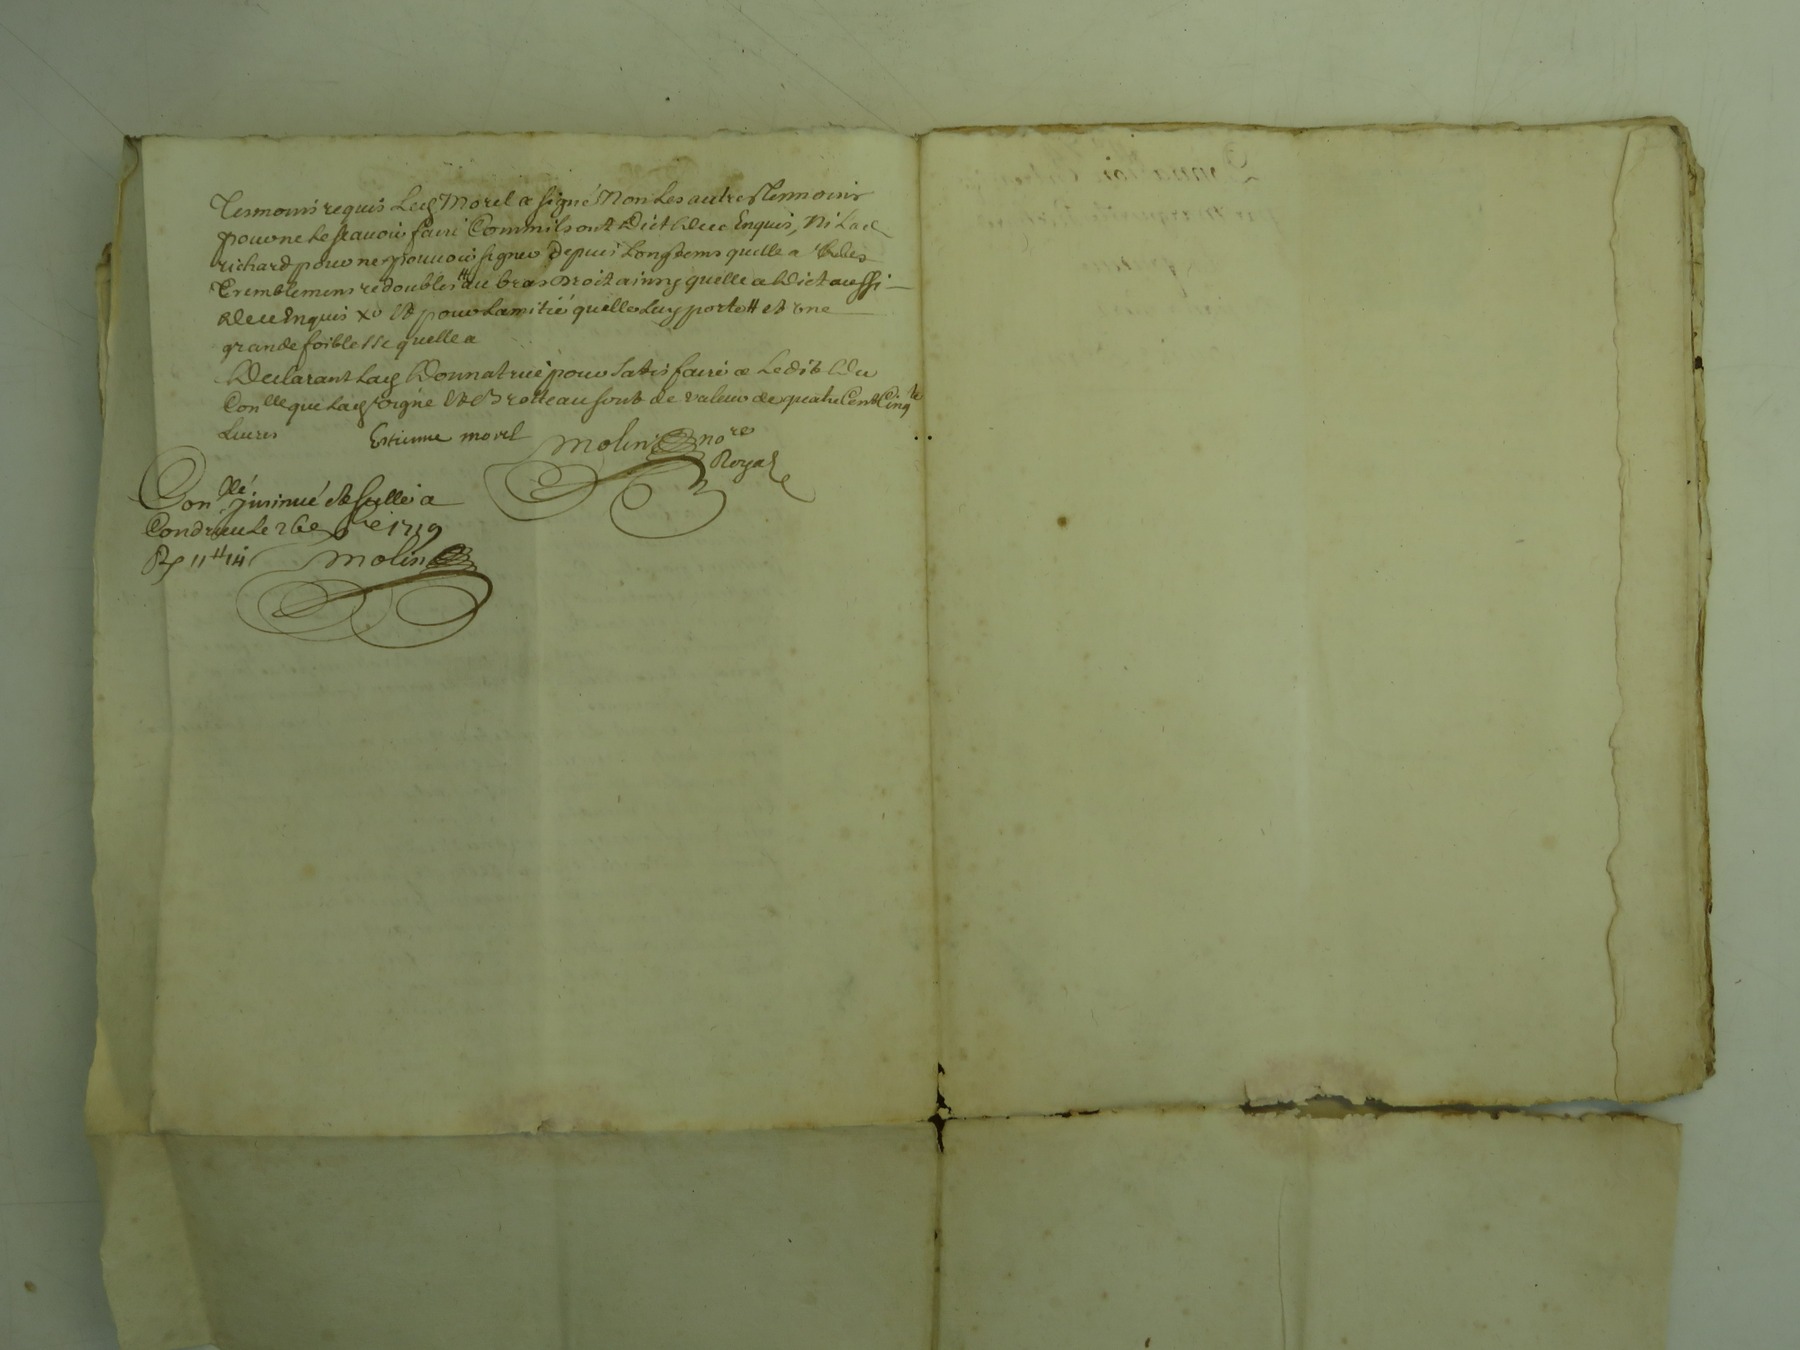 Tesmoins requis Led Morel a signé Non Les autres Tesmoins
pour ne Le scavoir faire Comm ils ont Dict Deuc Enquis, Ni Lad
richard pour ne pouvoir signer Depuis Longtems quelle a Des
Tremblemens redoubles au bras Droit ainsy quelle a Dict aussi
Deue Enquis Xv Et pour Lamitié quelle Luy porte et une
grande foiblesse quelle a
Declarant Lad Donnatrice pour Satisfaire a Ledit Du
Conlle que Lad vigne Et Brotteau sont de valeur de quatre Cent Cinqte
Livres
Estienne morel
Molin nore
Royal
Conllé Jnsinué et scellé a
Condrieu Le 26e bre 1719
Rs 11tt 14s
Molin